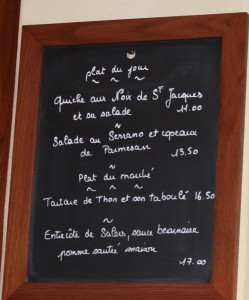 plat du jour
~ ~ ~
Quiche aux Noix de St Jacques
et sa salade 11.00
~
Salade au Serrano et copeaux
de Parmesan 13.50
~
Plat du marché
~ ~ ~
Tartare de Thon et son taboulé 16.50
~
Entrecôte de Salers, sauce bearnaise
pomme sautée maison
17.00